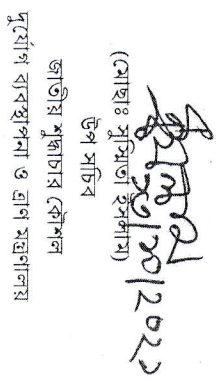 ২০২১
(মোছাঃ সুস্মিতা ইসলাম)
উপ সচিব
জাতীয় শুদ্ধাচার কৌশল
দুর্যোগ ব্যবস্থাপনা ও ত্রাণ মন্ত্রণালয়